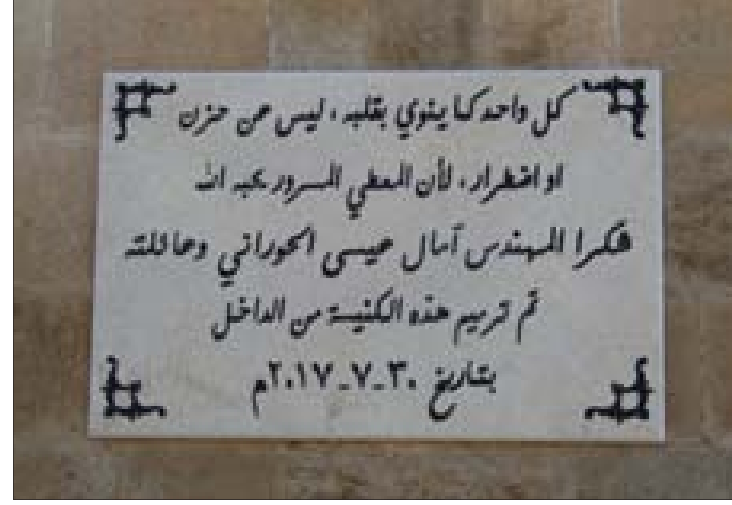 كل واحد كما ينوي بقلبه، ليس عن حزن
او اضطرار، لأن المعطي المسرور يحبه الله
شكرا المهندس آمال عيسى الحوراني وعائلته
تم ترميم هذه الكنيسة من الداخل
بتاريخ ٣٠-٧-٢٠١٧م